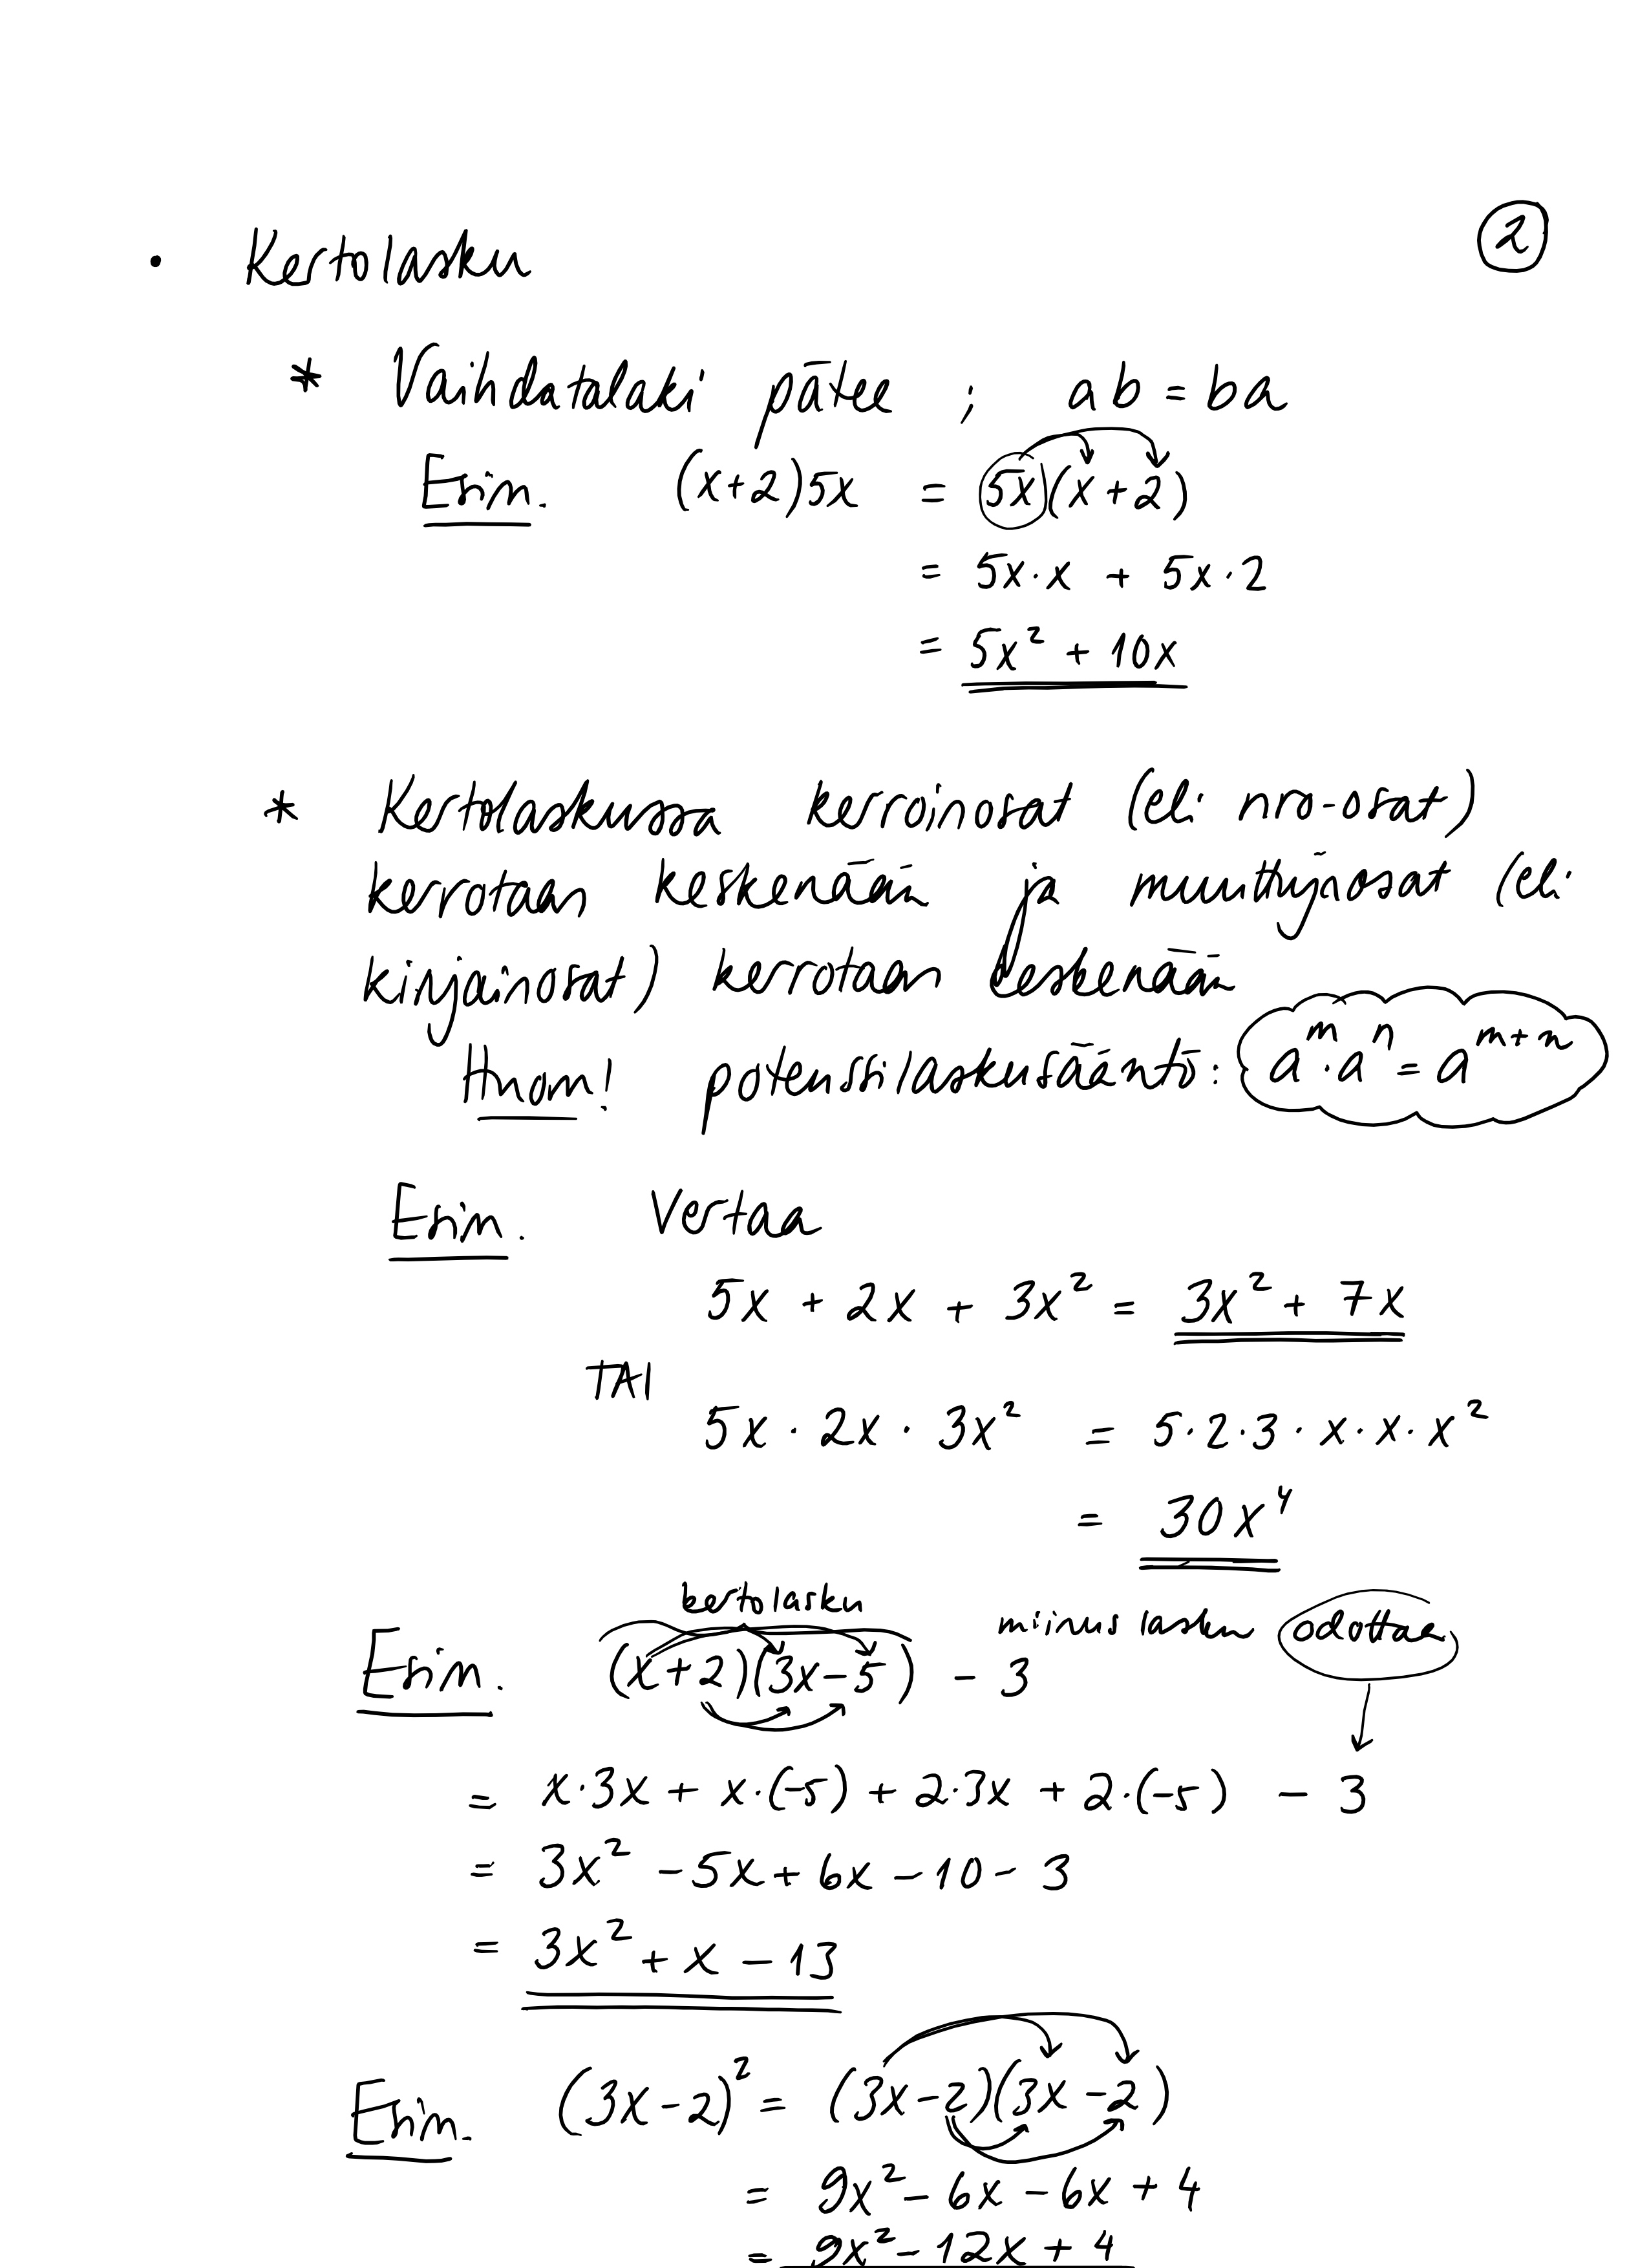 • Kertolasku ②
* Vaihdatalaki pätee ; ab = ba
Esim. (x+2)5x = 5x(x+2)
= 5x·x + 5x·2
= 5x² + 10x
* Kertolaskussa kerroinosat (eli nro-osat)
kerrotaan keskenään ja muuttujaosat (eli
kirjainosat) kerrotaan keskenään
Huom! potenssilaskusääntö: aᵐ·aⁿ = aᵐ⁺ⁿ
Esim. Vertaa
5x + 2x + 3x² = 3x² + 7x
TAI
5x · 2x · 3x² = 5·2·3·x·x·x²
= 30x⁴
kertolasku miinuslasku odottaa
Esim. (x+2)(3x-5) - 3
= x·3x + x·(-5) + 2·3x + 2·(-5) - 3
= 3x² - 5x + 6x - 10 - 3
= 3x² + x - 13
Esim. (3x-2)² = (3x-2)(3x-2)
= 9x² - 6x - 6x + 4
= 9x² - 12x + 4